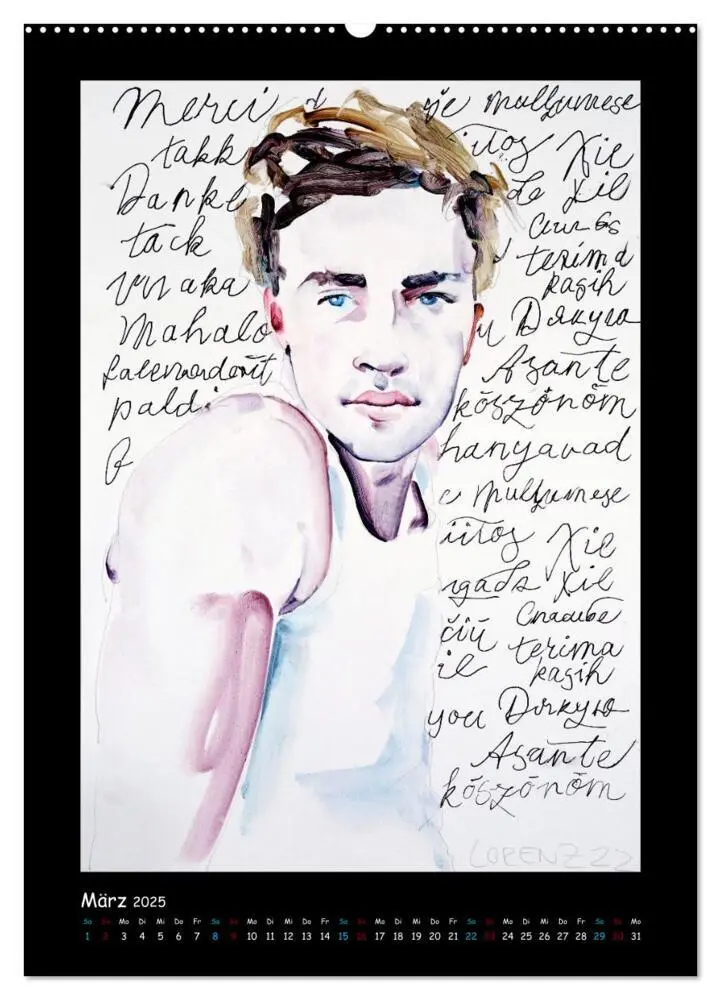 Merci
takk
Danke
tack
Vinaka
Mahalo
paldi
je mulţumesc
iitos Xie
Xie
terima
kasih
Дякую
Asante
köszönöm
hanyavad
c mulţumesc
iitos Xie
ngads Xie
Спасибо
čiū terima
ie kasih
you Дякую
Asante
köszönöm
LORENZ22
März 2025
Sa So Mo Di Mi Do Fr Sa So Mo Di Mi Do Fr Sa So Mo Di Mi Do Fr Sa So Mo Di Mi Do Fr Sa So Mo
1 2 3 4 5 6 7 8 9 10 11 12 13 14 15 16 17 18 19 20 21 22 23 24 25 26 27 28 29 30 31